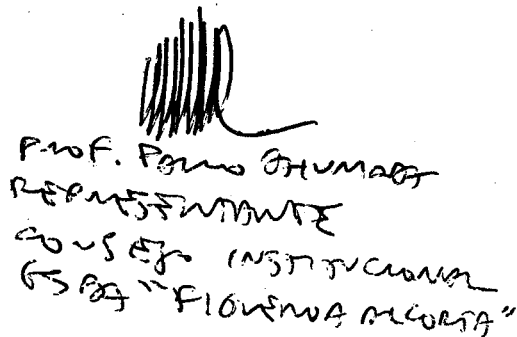 PROF. PABLO AHUMADA
REPRESENTANTE
CONSEJO INSTITUCIONAL
ESBA "FIGUEROA ALCORTA"